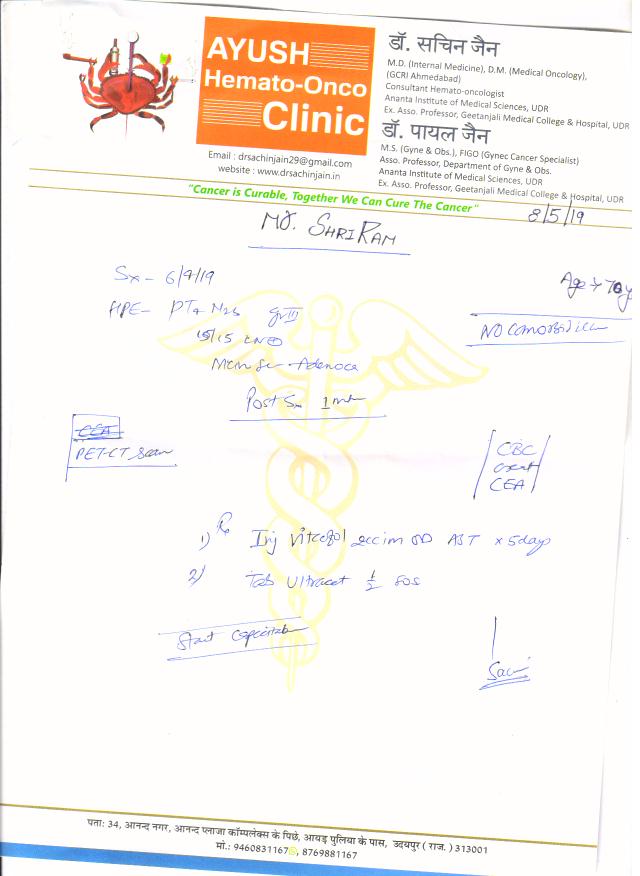 AYUSH
Hemato-Onco
Clinic
Email : drsachinjain29@gmail.com
website : www.drsachinjain.in
डॉ. सचिन जैन
M.D. (Internal Medicine), D.M. (Medical Oncology),
(GCRI Ahmedabad)
Consultant Hemato-oncologist
Ananta Institute of Medical Sciences, UDR
Ex. Asso. Professor, Geetanjali Medical College & Hospital, UDR
डॉ. पायल जैन
M.S. (Gyne & Obs.), FIGO (Gynec Cancer Specialist)
Asso. Professor, Department of Gyne & Obs.
Ananta Institute of Medical Sciences, UDR
Ex. Asso. Professor, Geetanjali Medical College & Hospital, UDR
"Cancer is Curable, Together We Can Cure The Cancer"
8/5/19
Mr. SHRIRAM
Sx - 6/4/19
Age → 70y
HPE- PT4 N2b Gr III
15/15 LN⊕
Adenoca
NO comorbidities
Post Sx 1
CEA
PET-CT Scan
CBC
creat
CEA
Rx
1) Inj Vitcofol 2cc im OD AST x 5days
2) Tab Ultracet ½ SOS
Start Capecitabine
पता: 34, आनन्द नगर, आनन्द प्लाजा कॉम्पलेक्स के पिछे, आयड़ पुलिया के पास, उदयपुर ( राज. ) 313001
मो.: 9460831167, 8769881167